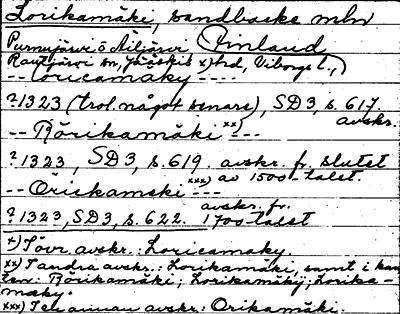 Lorikamäki, sandbacke mln
Purnujärvi o Miljärvi (Finland
Rautjärvi sn, Jääskis x) hd, Viborgs l.,)
-- Loricamaky ----
? 1323 (trol. något senare), SD 3, s. 617.
avskr.
-- Rörikamäki xx) ---
? 1323, SD 3, s. 619. avskr. fr. slutet
av 1500-talet.
-- Oriskamski xxx) ---
avskr. fr.
? 1323, SD 3, s. 622. 1700-talet
x) I övr. avskr.: Loricamaky.
xx) I andra avskr.: Lorikamäki, samt i kan
ten: Rörikamäki; Lorikamäkÿ; Lorika-
maky.
xxx) I en annan avskr: Orikamäki.